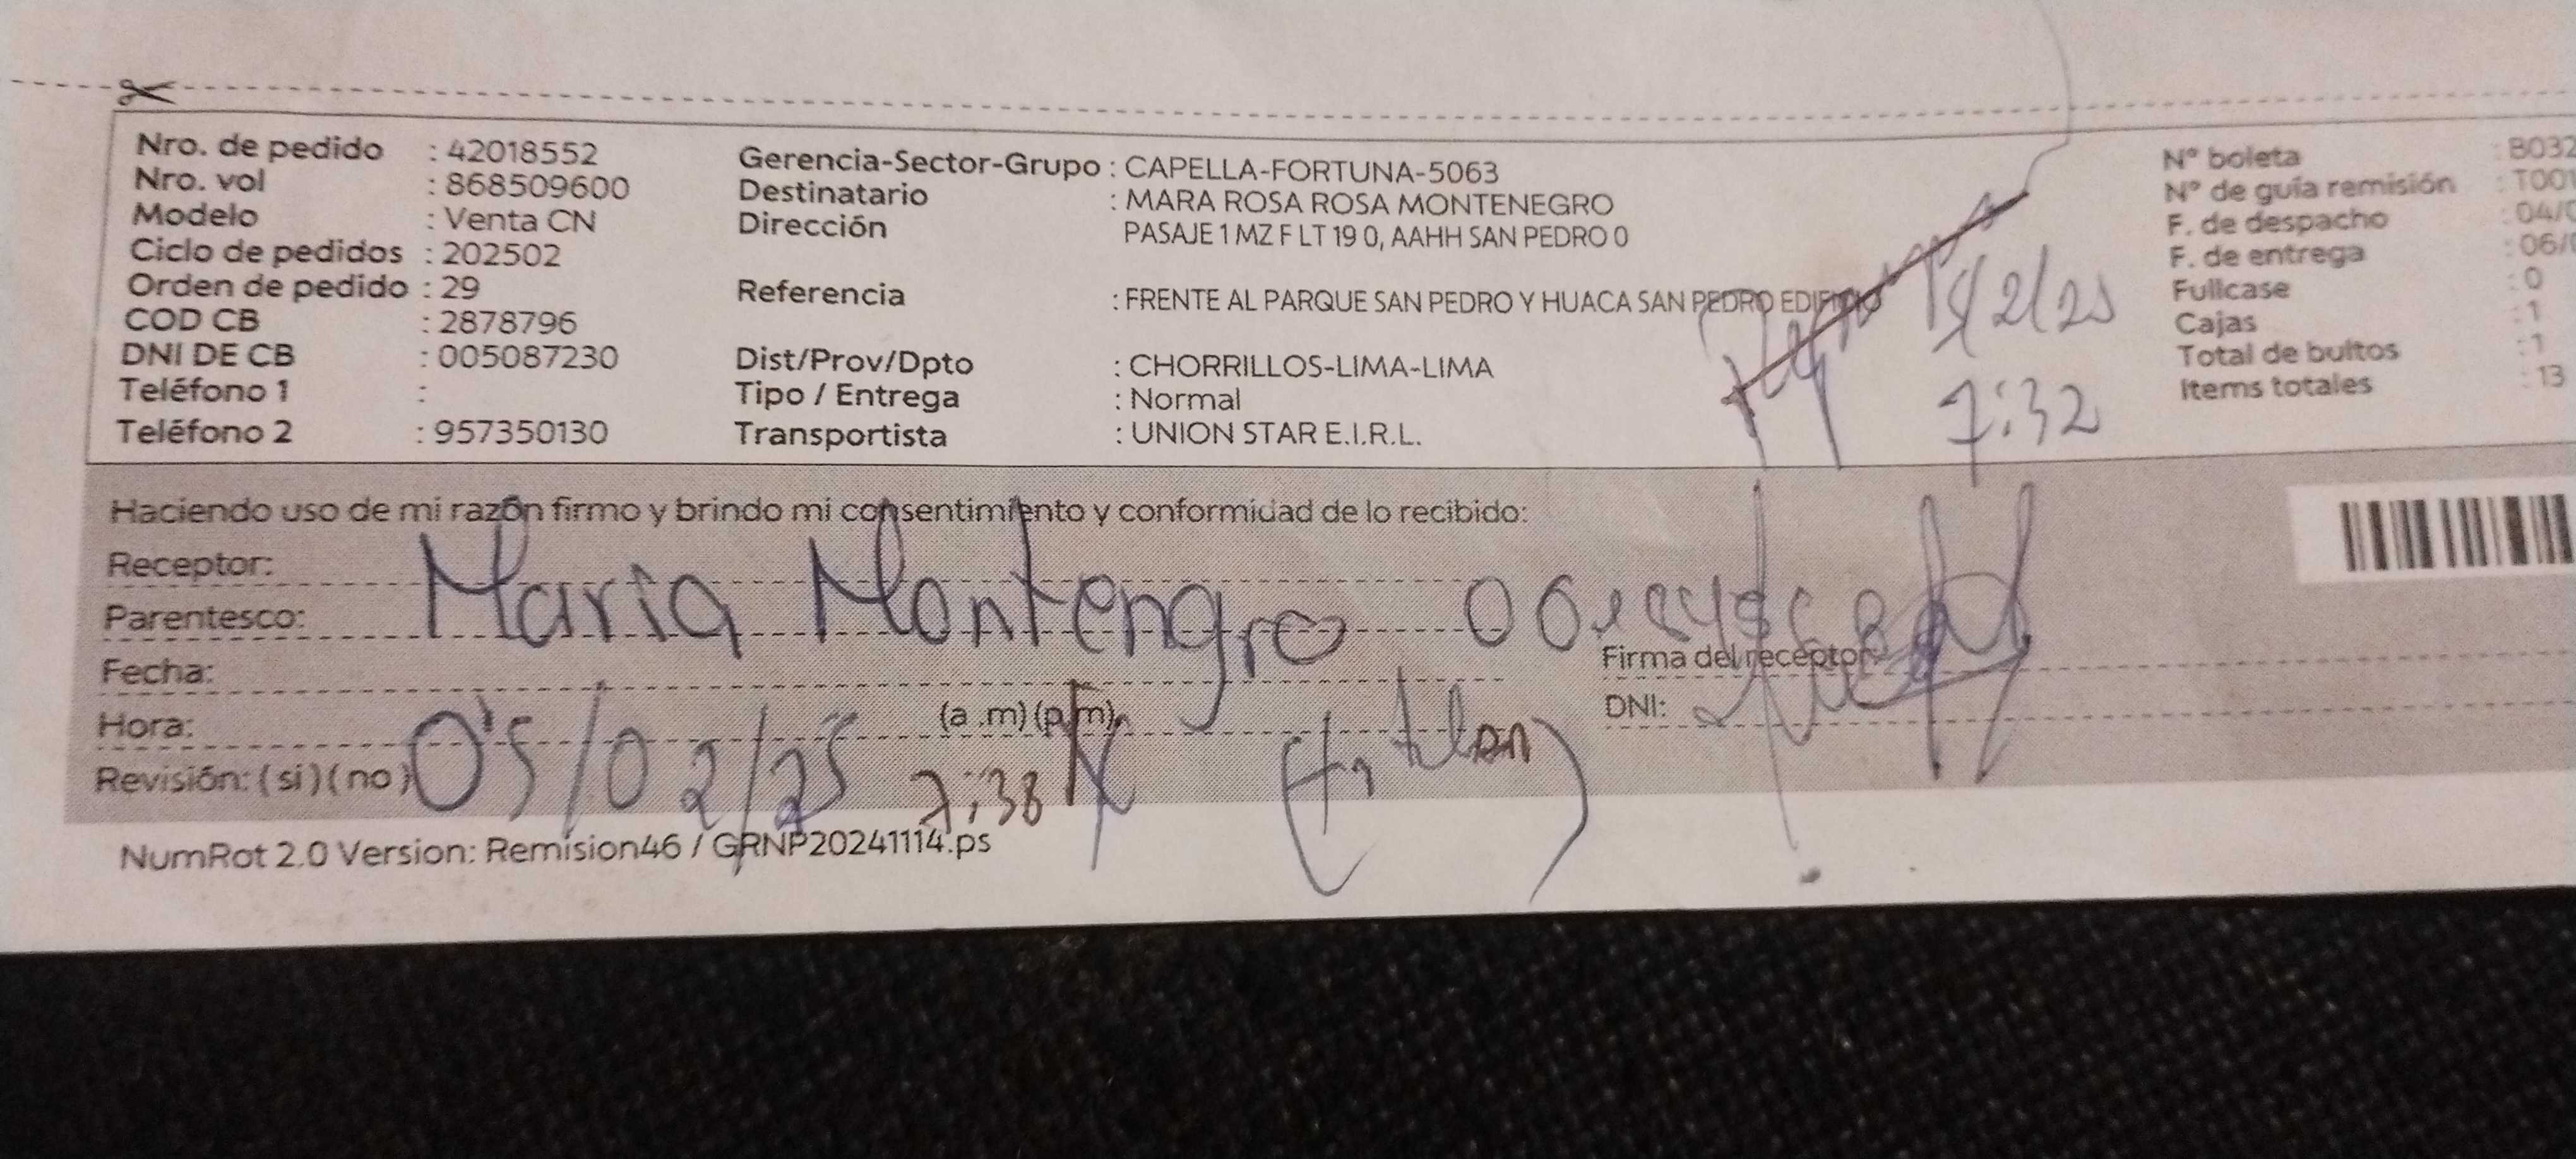 Nro. de pedido : 42018552
Nro. vol : 868509600
Modelo : Venta CN
Ciclo de pedidos : 202502
Orden de pedido : 29
COD CB : 2878796
DNI DE CB : 005087230
Teléfono 1 :
Teléfono 2 : 957350130
Gerencia-Sector-Grupo : CAPELLA-FORTUNA-5063
Destinatario : MARA ROSA ROSA MONTENEGRO
Dirección PASAJE 1 MZ F LT 19 0, AAHH SAN PEDRO 0
Referencia : FRENTE AL PARQUE SAN PEDRO Y HUACA SAN PEDRO EDIFICIO
Dist/Prov/Dpto : CHORRILLOS-LIMA-LIMA
Tipo / Entrega : Normal
Transportista : UNION STAR E.I.R.L.
5/2/25
7:32
N° boleta : B032
N° de guía remisión : T001
F. de despacho : 04/0
F. de entrega : 06/0
Fullcase : 0
Cajas : 1
Total de bultos : 1
Items totales : 13
Haciendo uso de mi razón firmo y brindo mi consentimiento y conformidad de lo recibido:
Receptor:
Parentesco:
Maria Montengro
Fecha:
Firma del receptor
Hora: (a .m) (p.m)
DNI:
Revisión: ( si ) ( no )
05/02/25 7:38
NumRot 2.0 Version: Remision46 / GRNP20241114.ps